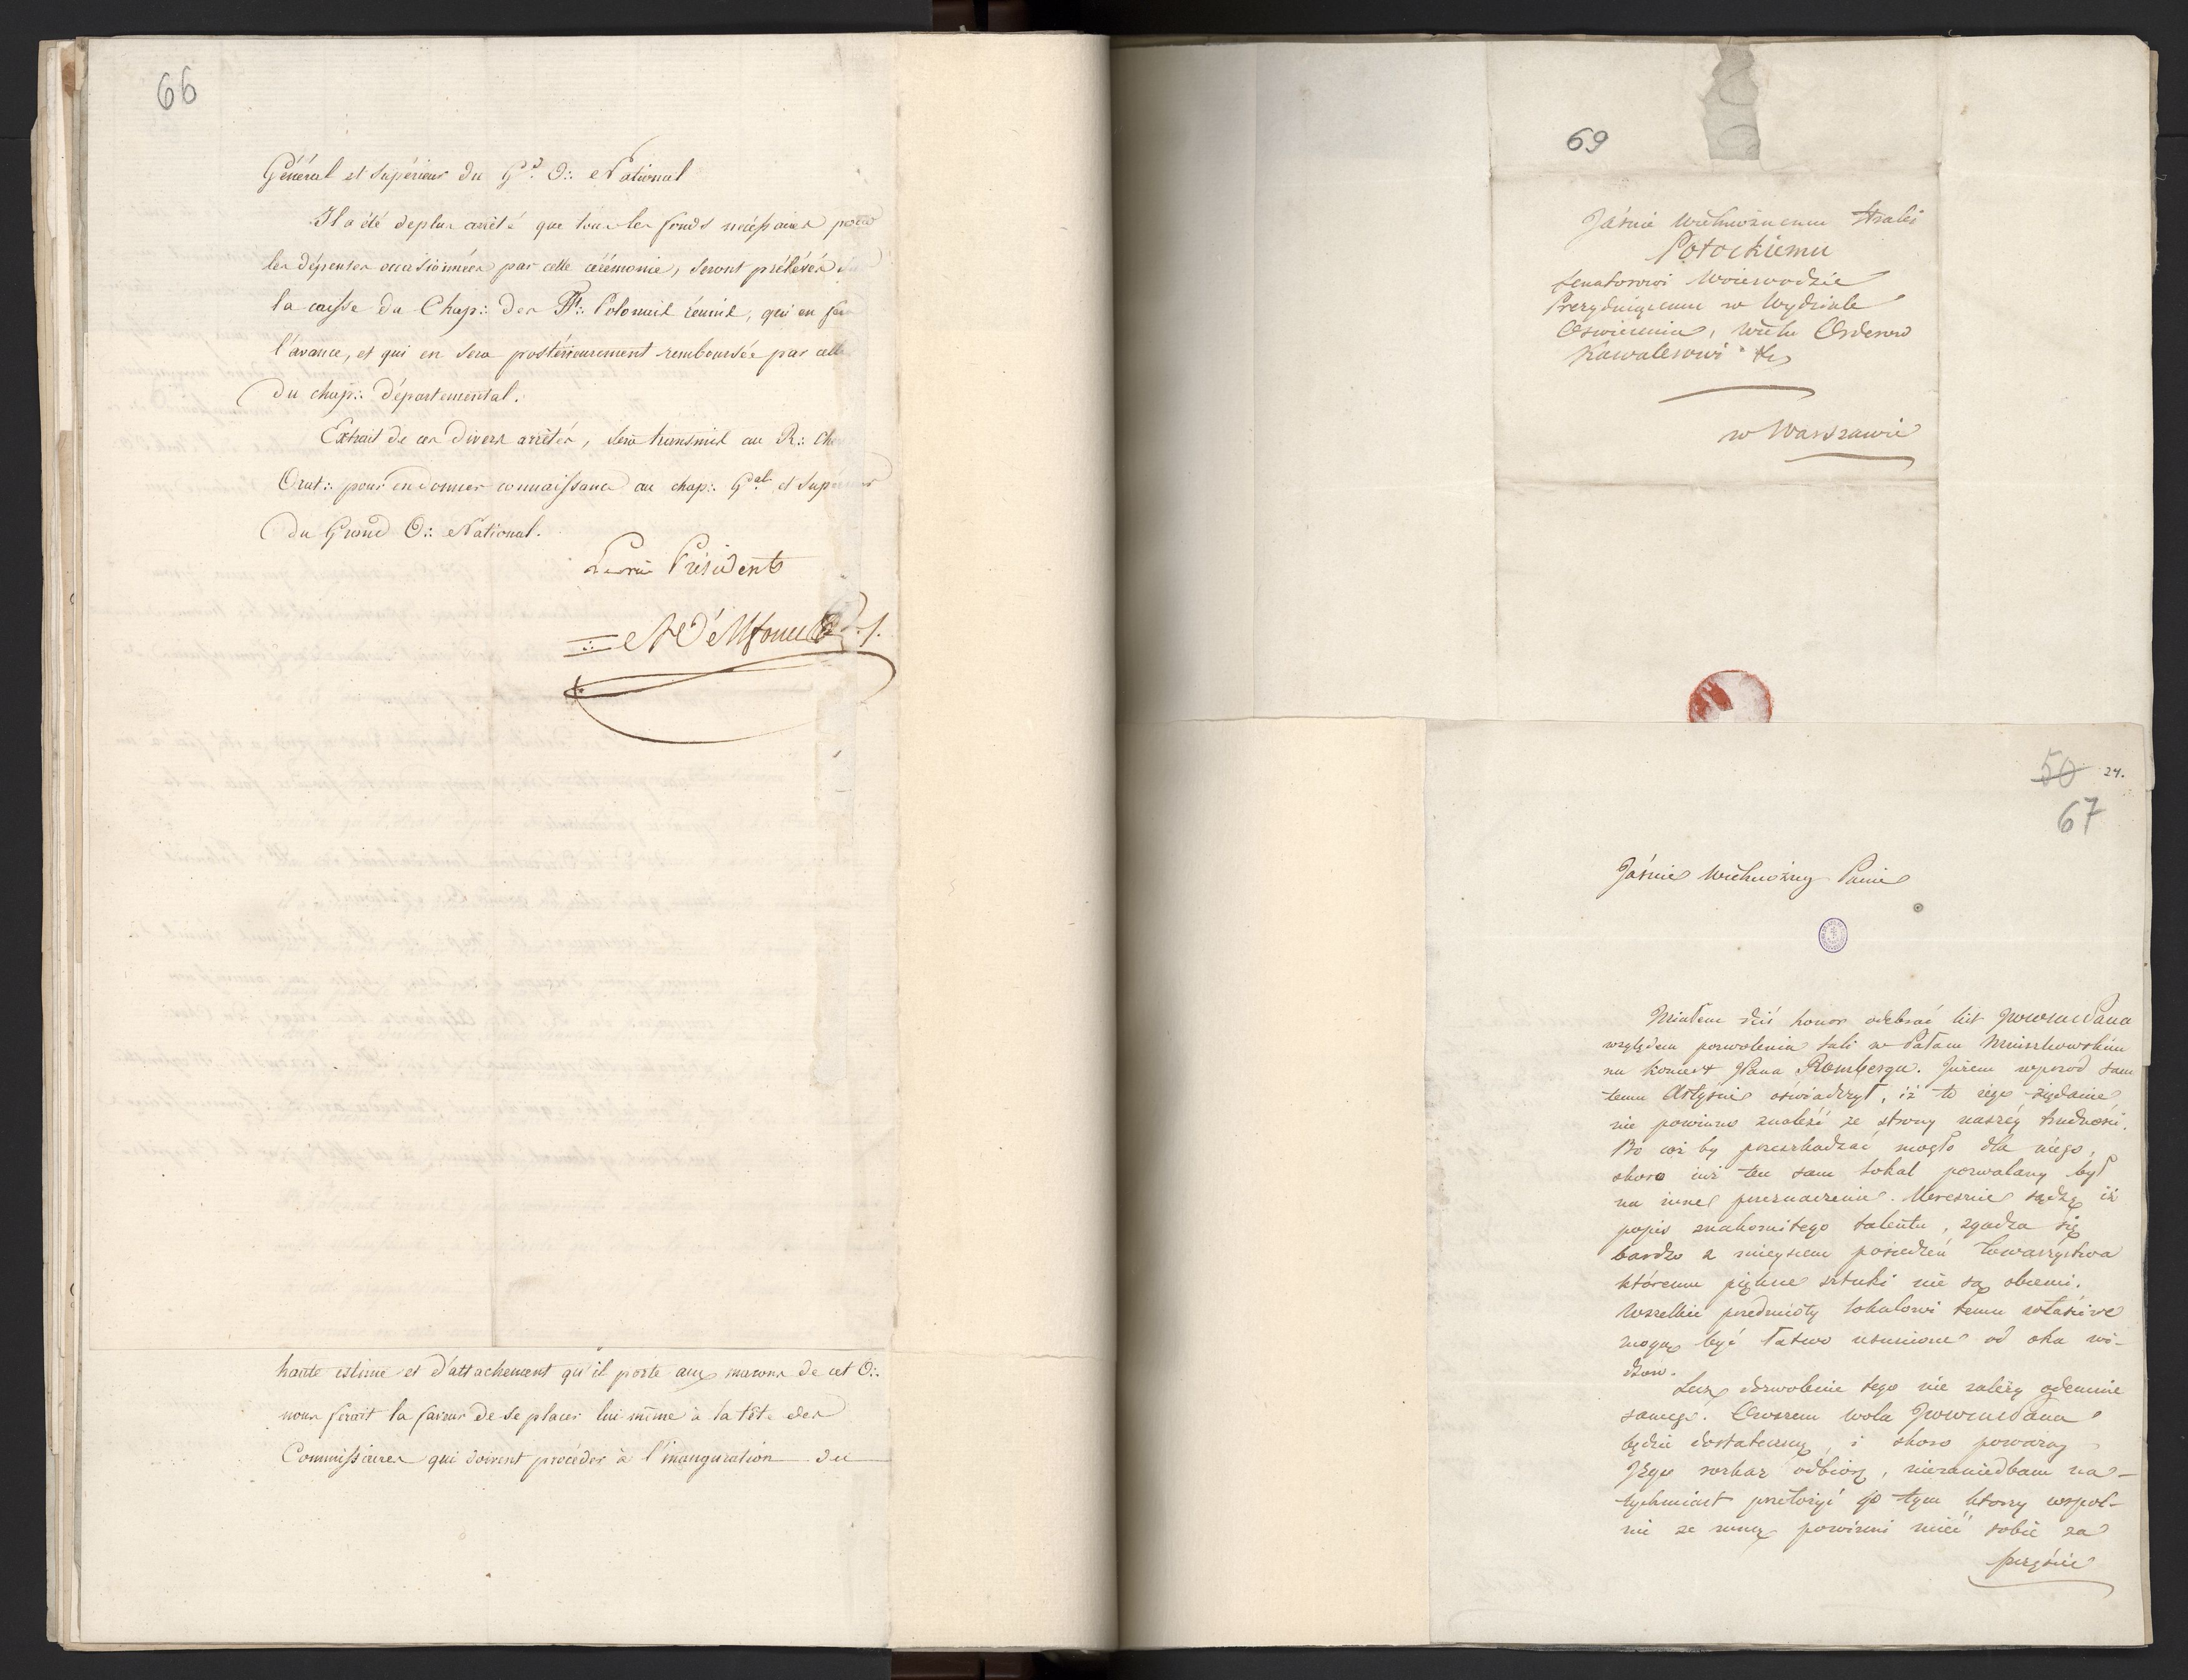 66
Général et Supérieur du Gd. O∴ National
Il a été deplus arrêté que tous les fonds nécessaires pour
les dépenses occasionnées par cette cérémonie, seront prélevés
la caisse du Chap∴ des FF∴ Polonais réunis, qui en
l'avance, et qui en sera postérieurement remboursée par celle
du chap∴ départemental.
Extrait de ces divers arrêtés, sera transmis au R∴
Orat∴ pour en donner connaissance au chap∴ Gal. et Supérieur
du Grand O∴ National.
Président
haute estime et d'attachement qu'il porte aux maçons de cet O∴
nous ferait la faveur de se placer lui même à la tête des
Commissaires qui doivent procéder à l'inauguration du
69
Jaśnie Wielmożnemu Hrabi
Potockiemu
Senatorowi Woiewodzie
Prezyduiącemu w Wydziale
Oświecenia, wielu Orderow
Kawalerowi &c
w Warszawie
50 24.
67
Jaśnie Wielmożny Panie
Miałem dziś honor odebrać list JWWMWPana
względem pozwolenia Sali w Pałacu Mniszkowskim
na koncert JPana Romberga. Jużem wprzod sam
temu Artyście oświadczył, iż to iego żądanie
nie powinno znaleść ze strony naszéy trudności.
Bo coż by przeszkadzać mogło dla niego,
skoro iuż ten sam lokal pozwalany był
na inne przeznaczenie. Wreszcie sądzę iż
popis znakomitego talentu, zgadza się
bardzo z mieyscem posiedzeń towarzystwa
któremu piękne sztuki nie są obcemi.
Wszelkie przedmioty lokalowi temu właściwe
mogą być łatwo usunione od oka wi-
dzow.
Lecz dozwolenie tego nie zależy odemnie
samego. Owszem wola JWWMWPana
będzie dostateczną, i skoro powazny
Jego rozkaz odbiorę, niezaniedbam na-
tychmiast przełożyć go tym ktorzy wspol-
nie ze mną powinni mieć sobie za